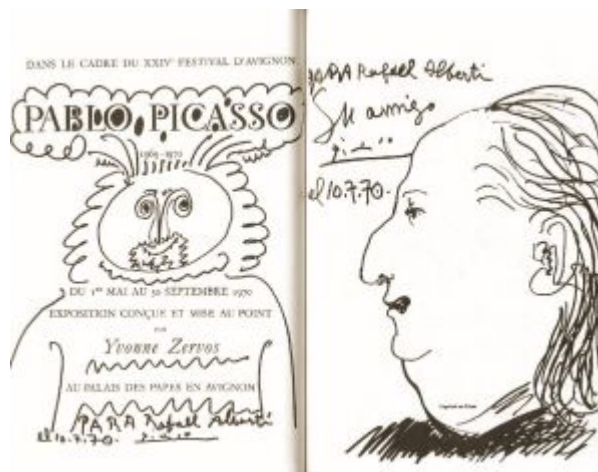 DANS LE CADRE DU XXIVe FESTIVAL D'AVIGNON
PABLO PICASSO
1969-1970
DU 1er MAI AU 30 SEPTEMBRE 1970
EXPOSITION CONÇUE ET MISE AU POINT
PAR
Yvonne Zervos
AU PALAIS DES PAPES EN AVIGNON
PARA Rafael Alberti
el 10.7.70.
PARA Rafael Alberti
Su amigo
el 10.7.70.